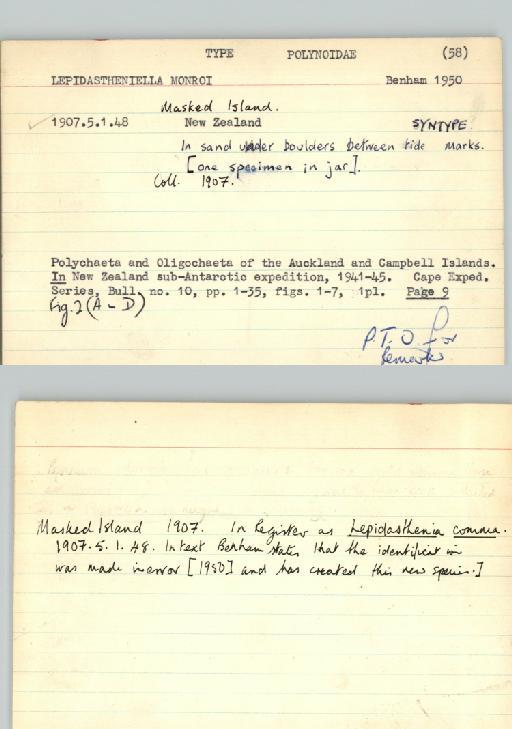 TYPE POLYNOIDAE (58)
LEPIDASTHENIELLA MONROI Benham 1950
Masked Island.
1907.5.1.48 New Zealand SYNTYPE
In sand under boulders between tide marks.
[one specimen in jar].
Coll. 1907.
Polychaeta and Oligochaeta of the Auckland and Campbell Islands.
In New Zealand sub-Antarctic expedition, 1941-45. Cape Exped.
Series, Bull. no. 10, pp. 1-35, figs. 1-7, 1pl. Page 9
Fig. 2 (A - D)
P.T.O for
Remarks
Masked Island 1907. In Register as Lepidasthenia comma.
1907.5.1.48. In text Benham states that the identification
was made in error [1950] and has created this new species.]